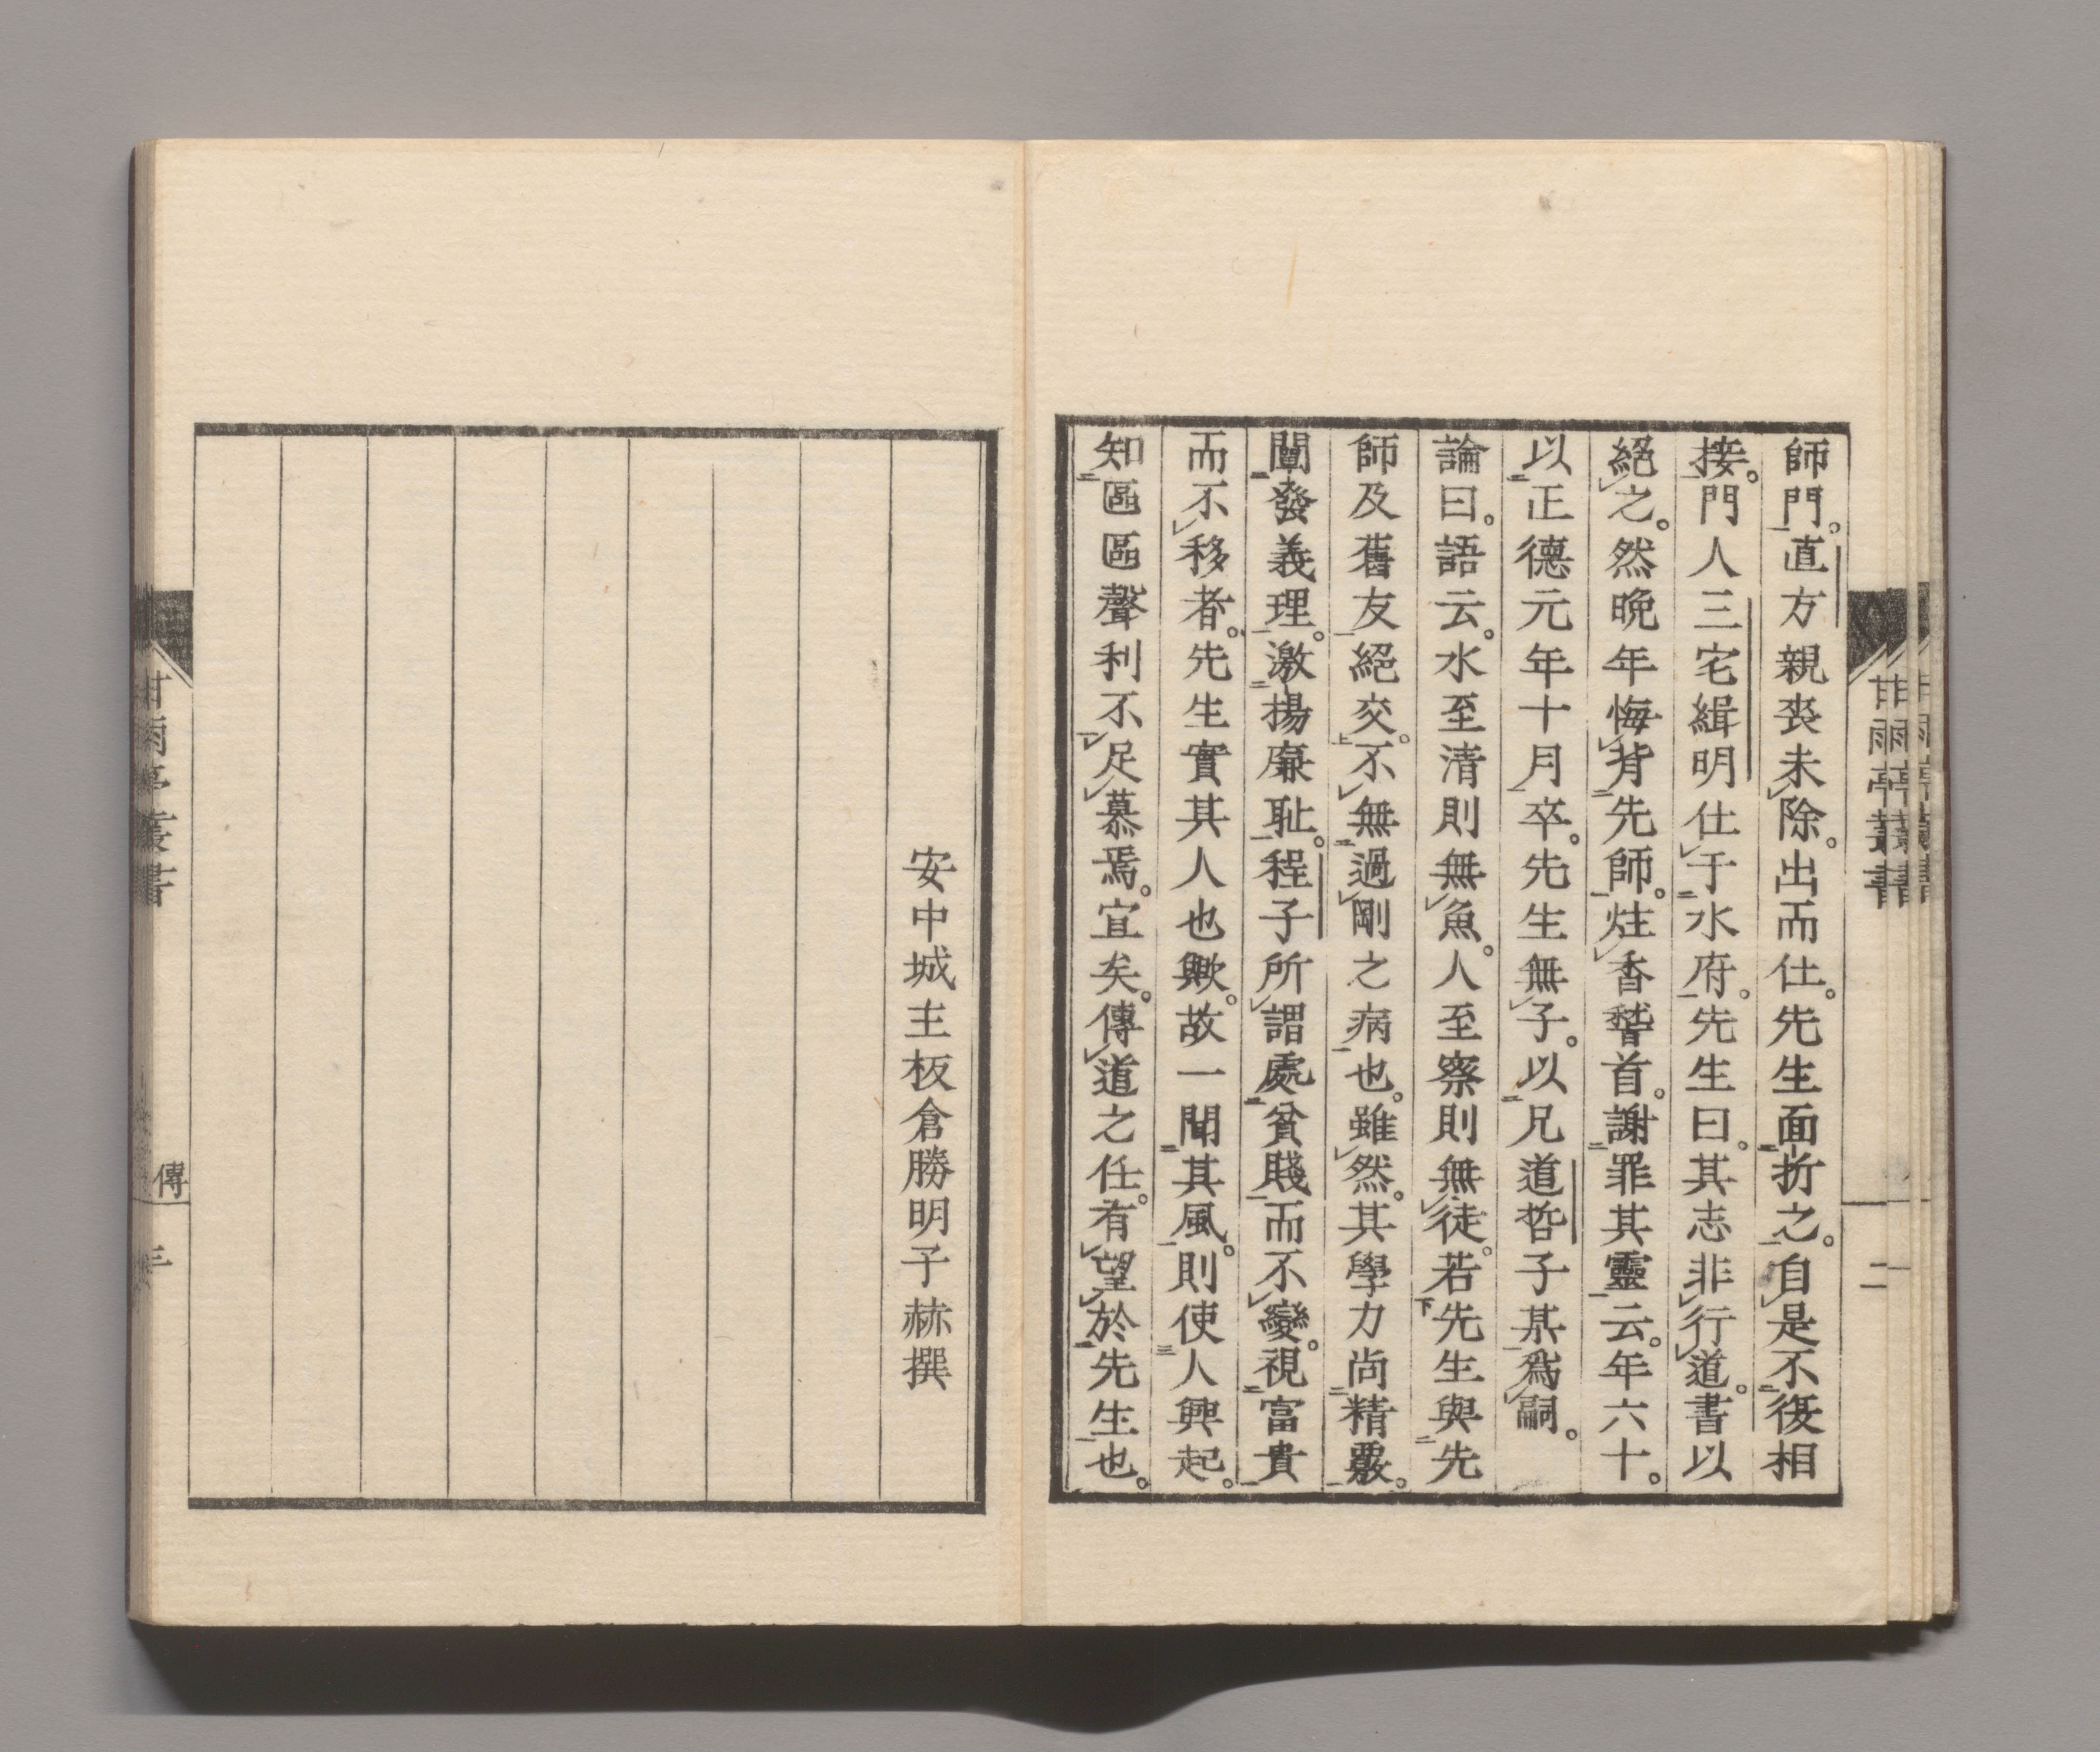 師門。直方親喪未除。出而仕。先生面折之。自是不復相
接。門人三宅緝明仕于水府。先生曰。其志非行道。書以
絕之。然晩年悔背先師。炷香稽首。謝罪其靈云。年六十。
以正德元年十月卒。先生無子。以兄道哲子某爲嗣。
論曰。語云。水至清則無魚。人至察則無徒。若先生與先
師及舊友絕交。不無過剛之病也。雖然。其學力尚精覈。
闡發義理。激揚廉恥。程子所謂處貧賤而不變。視富貴
而不移者。先生實其人也歟。故一聞其風。則使人興起。
知區區聲利不足慕焉。宜矣。傳道之任。有望於先生也。
安中城主板倉勝明子赫撰
甘雨亭叢書
二
甘雨亭叢書
傳